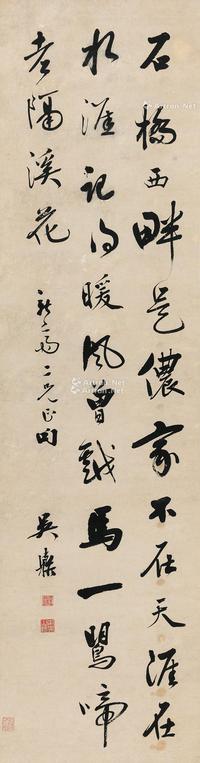 石橋西畔是儂家不在天涯在
水涯記得暖風曾馬一鶯啼
老隔溪花
二兄正
吳
Artron.Net